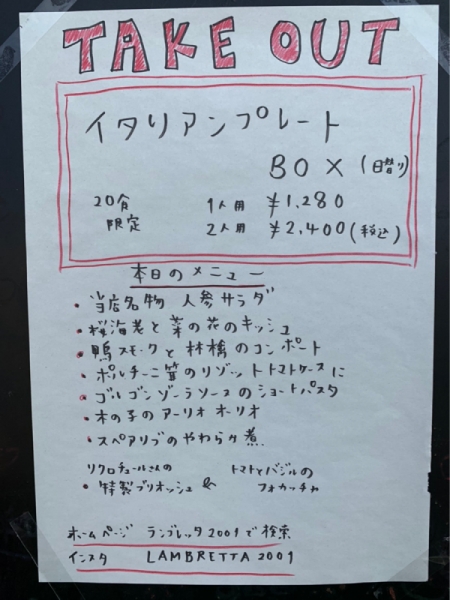 TAKE OUT
イタリアンプレート
BOX (日替り)
20食限定
1人用 ¥1,280
2人用 ¥2,400(税込)
本日のメニュー
・当店名物 人参サラダ
・桜海老と菜の花のキッシュ
・鴨スモークと林檎のコンポート
・ポルチーニ茸のリゾットトマトケースに
・ゴルゴンゾーラソースのショートパスタ
・木の子のアーリオオーリオ
・スペアリブのやわらか煮
リクロチュールさんの トマトとバジルの
・特製ブリオッシュ & フォカッチャ
ホームページ ランブレッタ2001で検索
インスタ LAMBRETTA2001